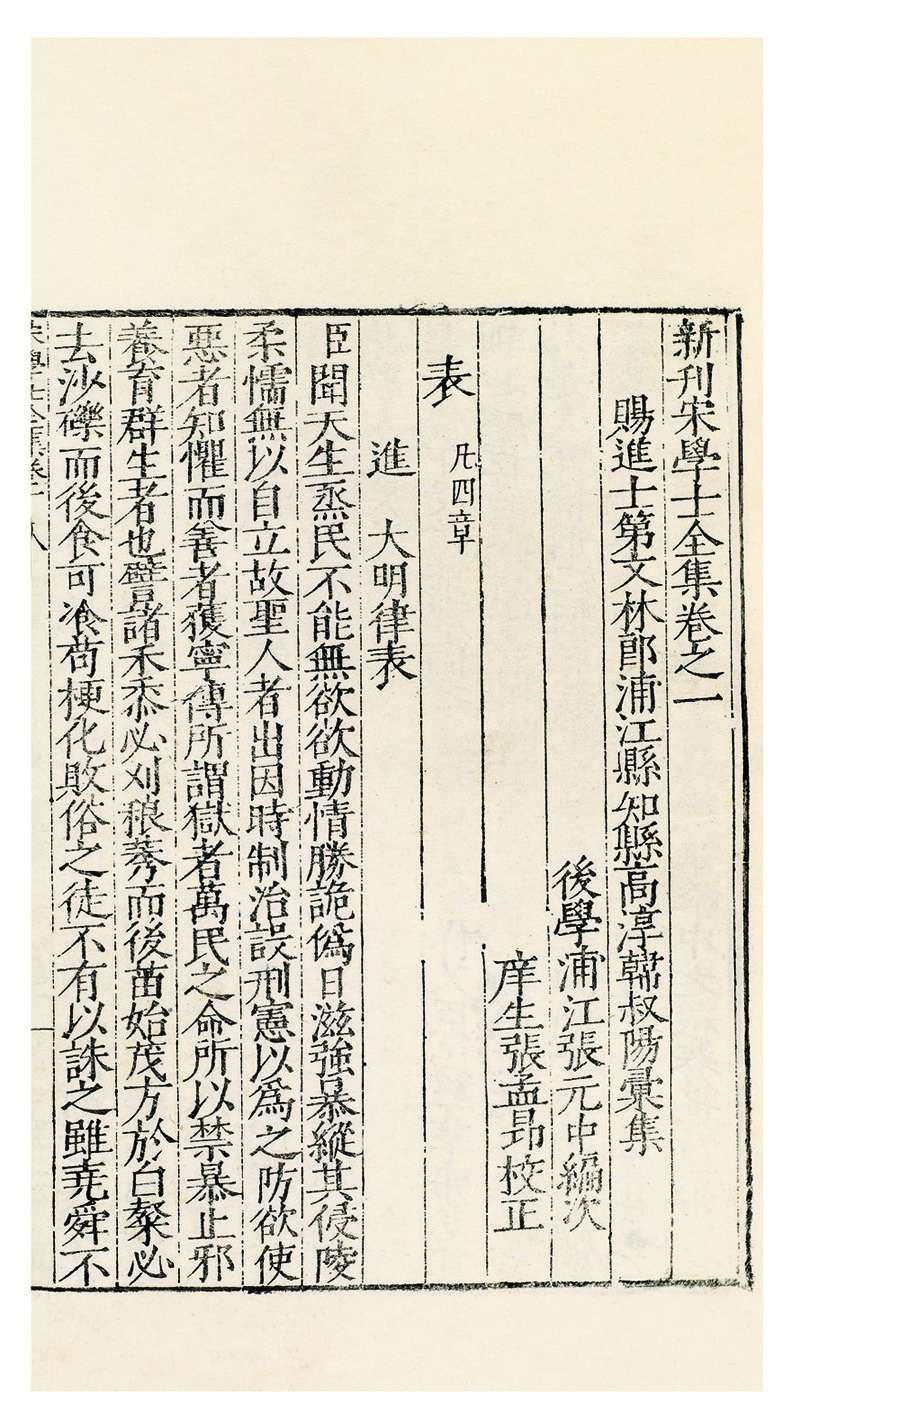 新刊宋學士全集卷之一
賜進士第文林郎浦江縣知縣高淳韓叔陽彙集
後學浦江張元中編次
庠生張孟昂校正
表 凡四章
進 大明律表
臣聞天生烝民不能無欲欲動情勝詭僞日滋強暴縱其侵陵
柔懦無以自立故聖人者出因時制治設刑憲以爲之防欲使
惡者知懼而善者獲寧傳所謂獄者萬民之命所以禁暴止邪
養育群生者也譬諸禾黍必刈稂莠而後苗始茂方於白粲必
去沙礫而後食可飡苟梗化敗俗之徒不有以誅之雖堯舜不